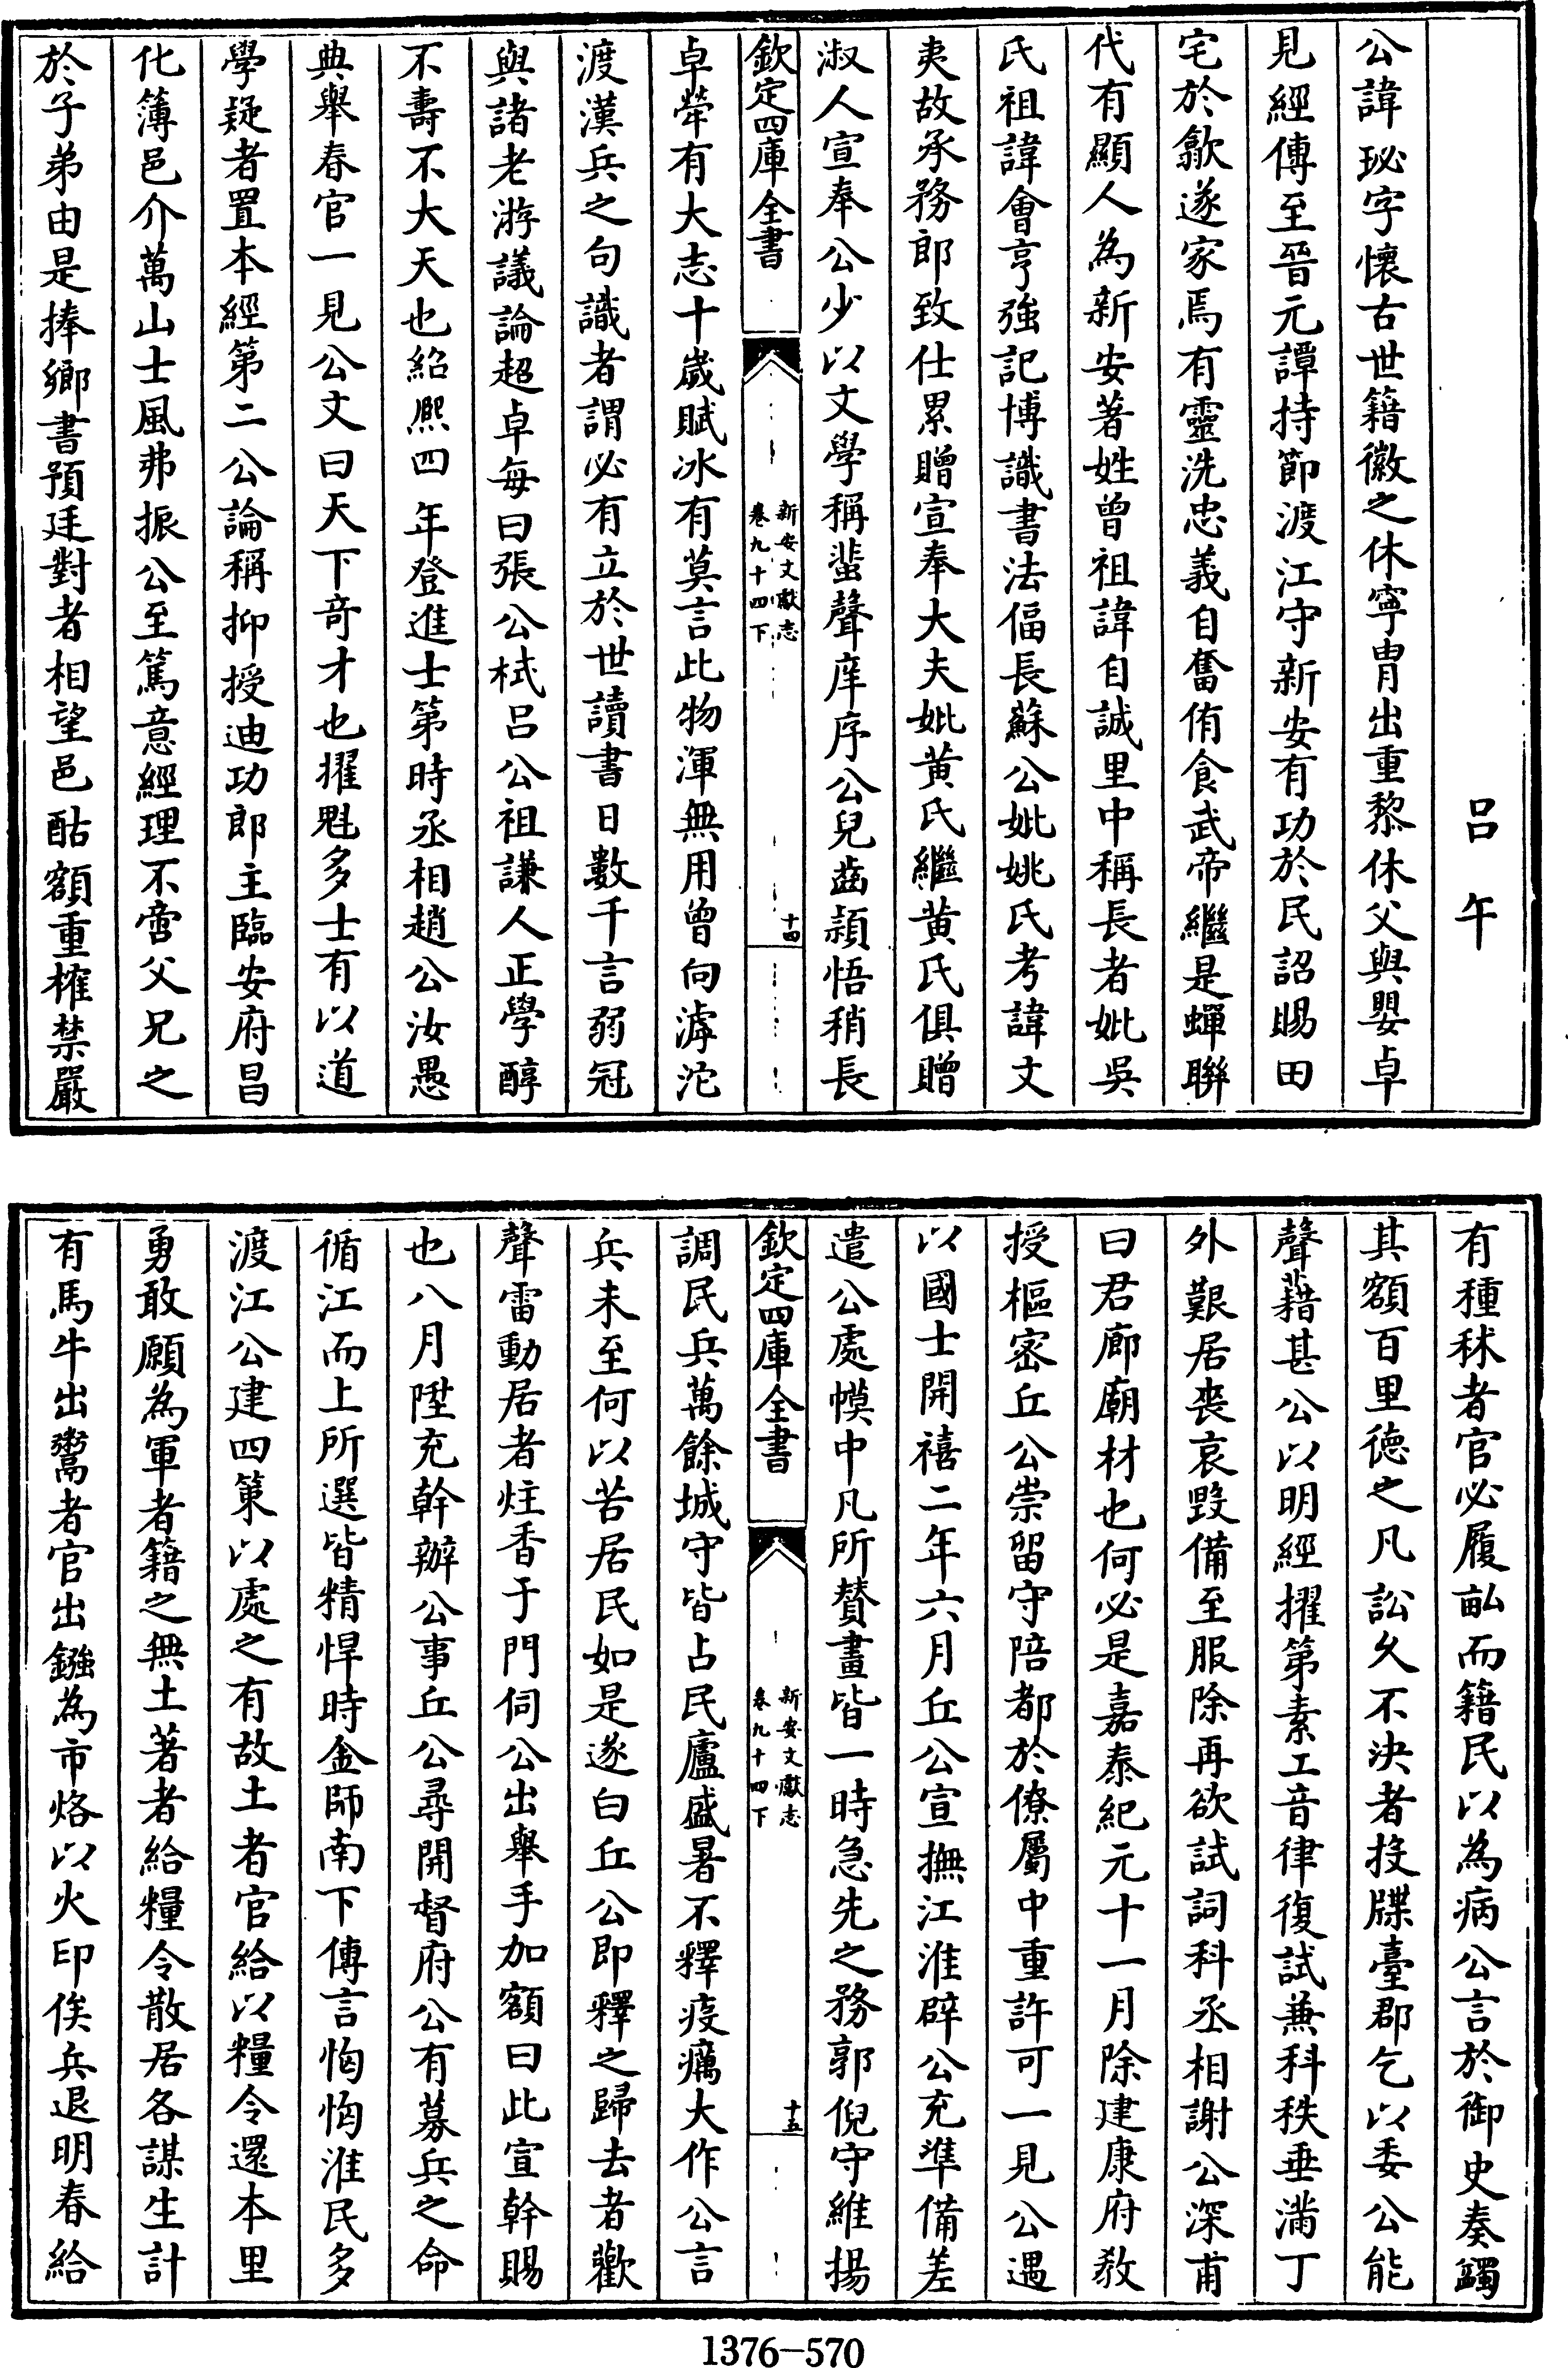 呂午
公諱珌字懷古世籍徽之休寧胄出重黎休父與嬰卓
見經傳至晉元譚持節渡江守新安有功於民詔賜田
宅於歙遂家焉有靈洗忠義自奮侑食武帝繼是蟬聯
代有顯人為新安著姓曾祖諱自誠里中稱長者妣吳
氏祖諱會亨強記博識書法偪長蘇公妣姚氏考諱文
夷故承務郎致仕累贈宣奉大夫妣黄氏繼黄氏俱贈
淑人宣奉公少以文學稱蜚聲庠序公兒齒穎悟稍長
欽定四庫全書
新安文獻志
卷九十四下
十四
卓犖有大志十歲賦冰有莫言此物渾無用曾向滹沱
渡漢兵之句識者謂必有立於世讀書日數千言弱冠
與諸老游議論超卓每曰張公栻呂公祖謙人正學醇
不壽不大天也紹熙四年登進士第時丞相趙公汝愚
典舉春官一見公文曰天下奇才也擢魁多士有以道
學疑者置本經第二公論稱抑授迪功郎主臨安府昌
化簿邑介萬山士風弗振公至篤意經理不啻父兄之
於子弟由是捧鄉書預廷對者相望邑酤額重榷禁嚴
有種秫者官必履畝而籍民以為病公言於御史奏蠲
其額百里德之凡訟久不決者投牒臺郡乞以委公能
聲藉甚公以明經擢第素工音律復試兼科秩垂滿丁
外艱居喪哀毀備至服除再欲試詞科丞相謝公深甫
曰君廊廟材也何必是嘉泰紀元十一月除建康府教
授樞密丘公崇留守陪都於僚屬中重許可一見公遇
以國士開禧二年六月丘公宣撫江淮辟公充準備差
遣公處幙中凡所贊畫皆一時急先之務郭倪守維揚
欽定四庫全書
新安文獻志
卷九十四下
十五
調民兵萬餘城守皆占民廬盛暑不釋疫癘大作公言
兵未至何以苦居民如是遂白丘公即釋之歸去者歡
聲雷動居者炷香于門伺公出舉手加額曰此宣幹賜
也八月陞充幹辦公事丘公尋開督府公有募兵之命
循江而上所選皆精悍時金師南下傳言恟恟淮民多
渡江公建四策以處之有故土者官給以糧令還本里
勇敢願為軍者籍之無土著者給糧令散居各謀生計
有馬牛出鬻者官出鏹為市烙以火印俟兵退明春給
1376-570